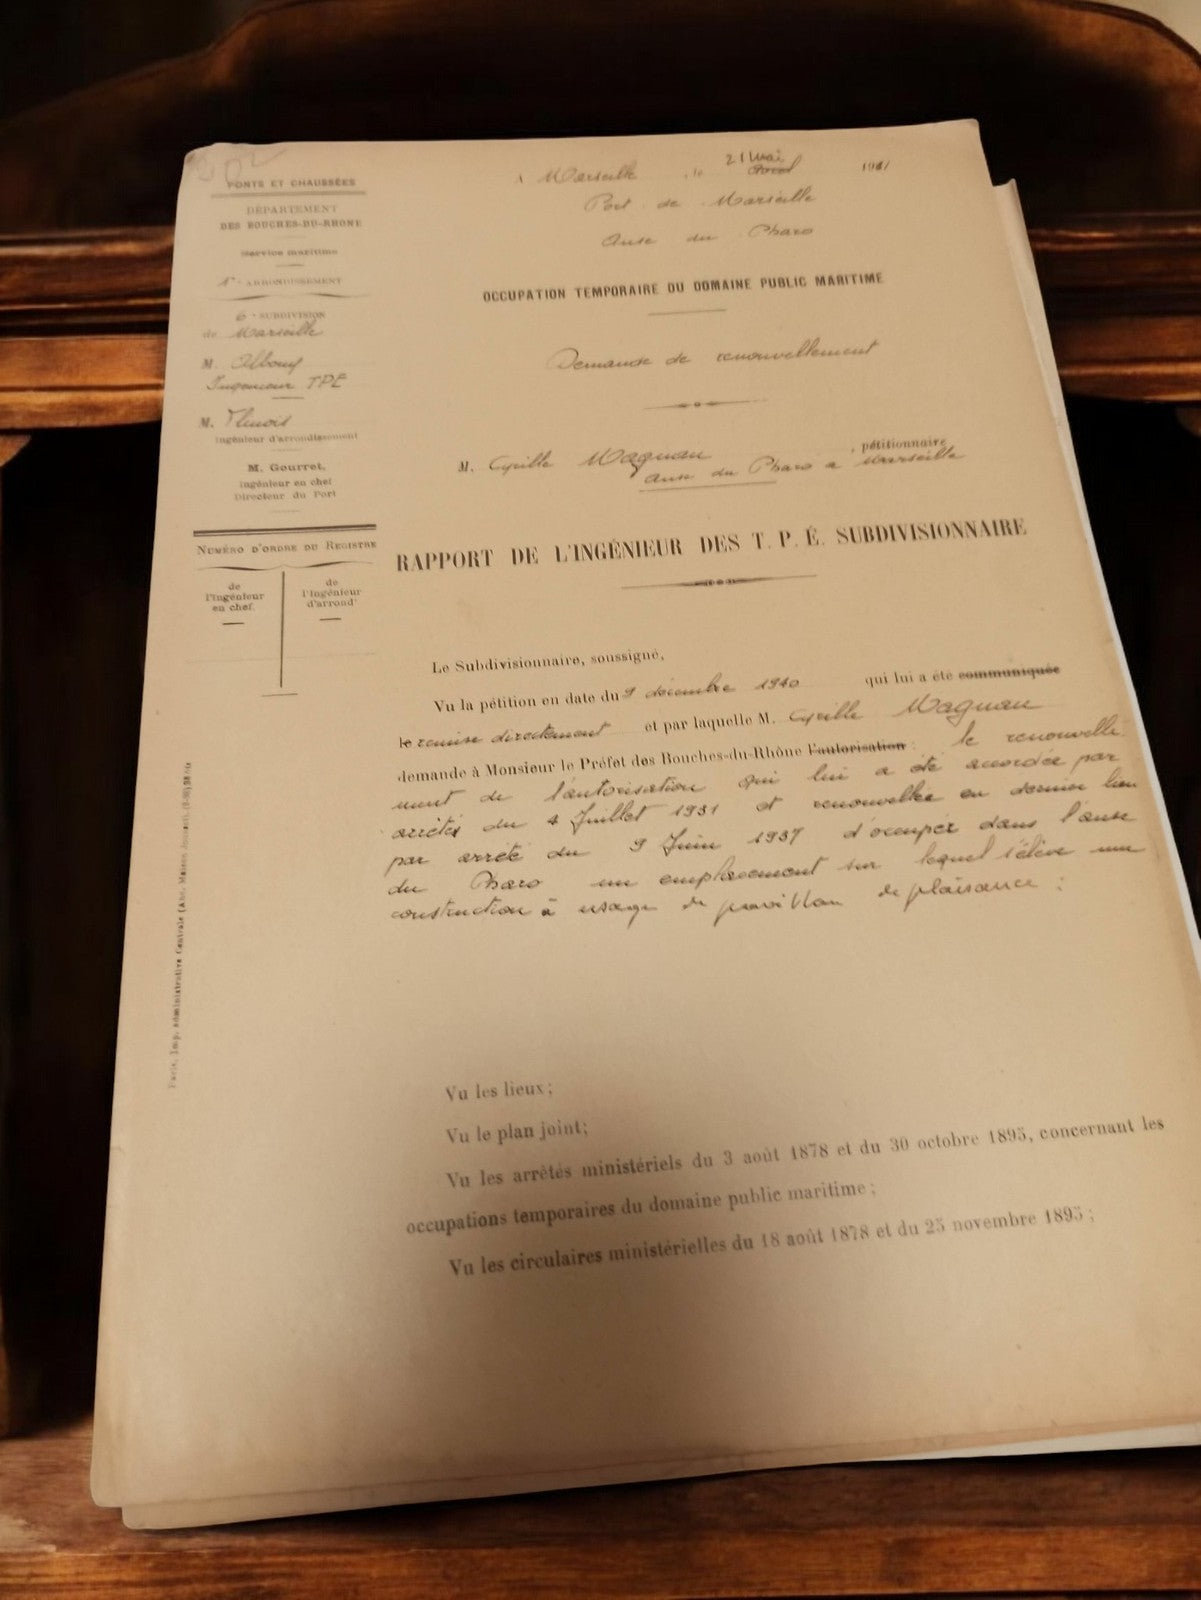 202
PONTS ET CHAUSSÉES
DÉPARTEMENT
DES BOUCHES-DU-RHONE
Service maritime
1er ARRONDISSEMENT
6e SUBDIVISION
de Marseille
M.
Ingénieur TPE
M.
Ingénieur d'arrondissement
M. Gourret,
Ingénieur en chef
Directeur du Port
NUMÉRO D'ORDRE DU REGISTRE
de
l'Ingénieur
en chef.
de
l'Ingénieur
d'arrondt
Paris, Imp. Administrative Centrale
A Marseille, le 21 Mai 1941
Port de Marseille
Anse du Pharo
OCCUPATION TEMPORAIRE DU DOMAINE PUBLIC MARITIME
Demande de renouvellement
M. Cyrille Magnan, pétitionnaire
Anse du Pharo à Marseille
RAPPORT DE L'INGÉNIEUR DES T. P. É. SUBDIVISIONNAIRE
Le Subdivisionnaire, soussigné,
Vu la pétition en date du 9 décembre 1940 qui lui a été communiquée
le remise directement et par laquelle M. Cyrille Magnan
demande à Monsieur le Préfet des Bouches-du-Rhône l'autorisation : le renouvelle
ment de l'autorisation qui lui a été accordée par
arrêtés du 4 Juillet 1931 et renouvelée en dernier lieu
par arrêté du 9 Juin 1937 d'occuper dans l'anse
du Pharo un emplacement sur lequel s'élève une
construction à usage de pavillon de plaisance :
Vu les lieux ;
Vu le plan joint ;
Vu les arrêtés ministériels du 3 août 1878 et du 30 octobre 1895, concernant les
occupations temporaires du domaine public maritime ;
Vu les circulaires ministérielles du 18 août 1878 et du 25 novembre 1895 ;